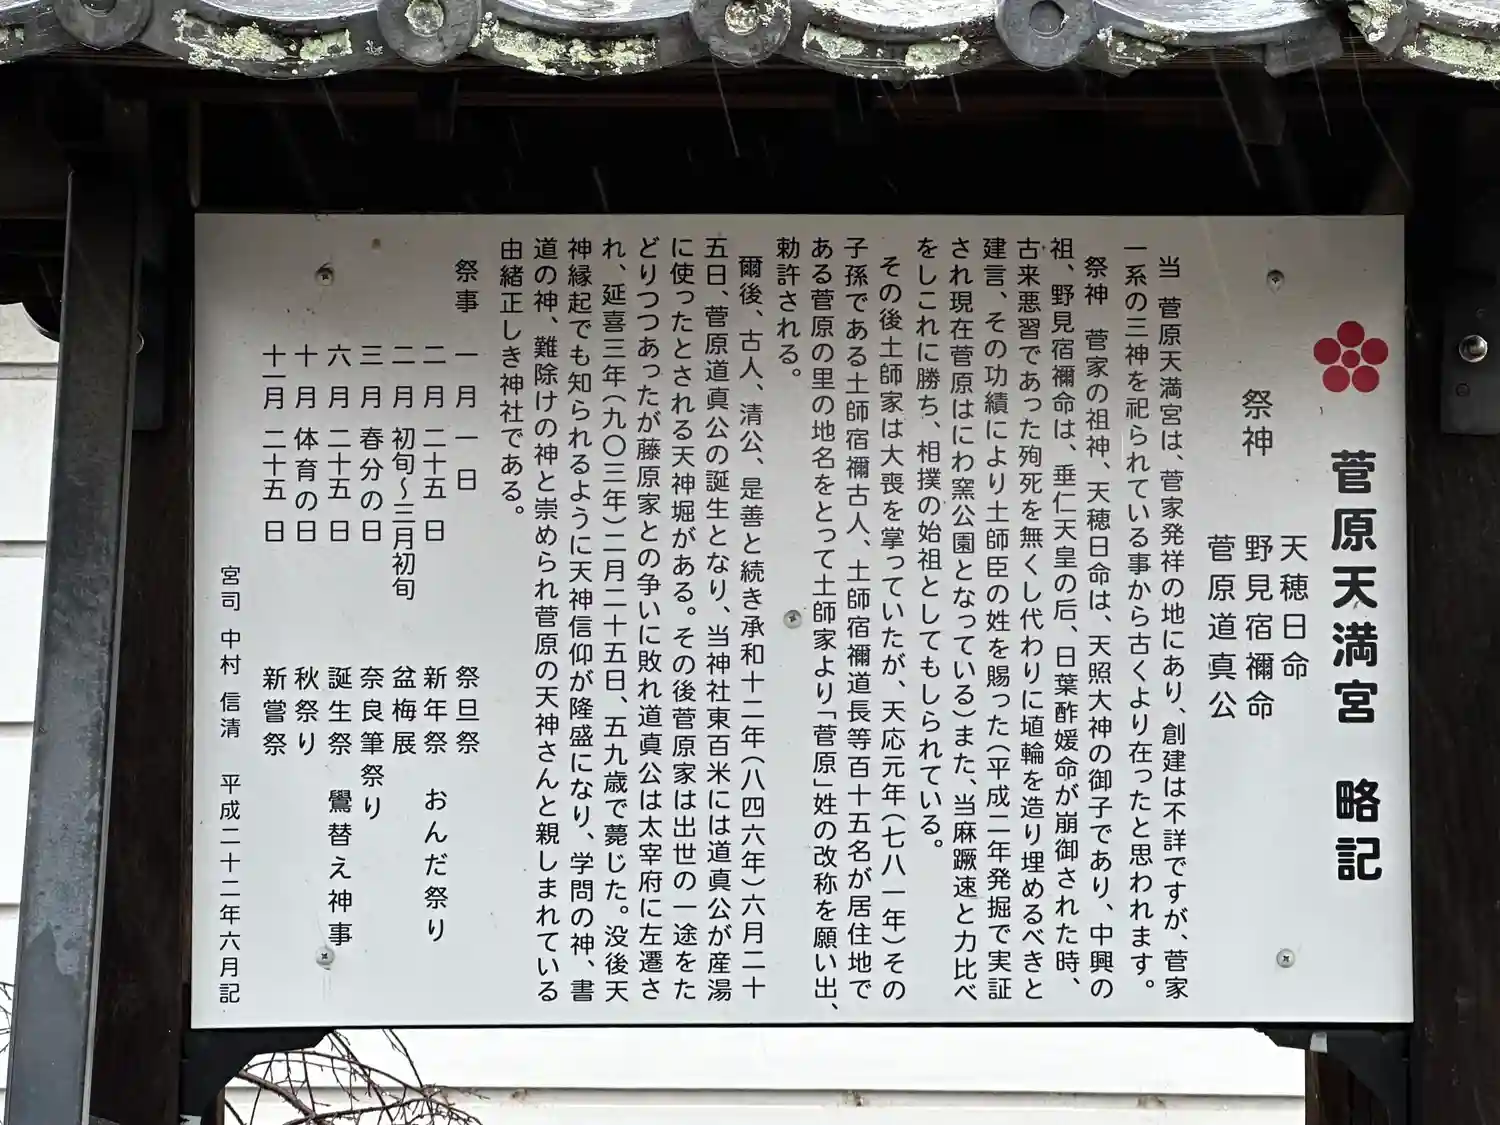 菅原天満宮 略記
祭神 天穂日命
野見宿禰命
菅原道真公
当 菅原天満宮は、菅家発祥の地にあり、創建は不詳ですが、菅家
一系の三神を祀られている事から古くより在ったと思われます。
祭神 菅家の祖神、天穂日命は、天照大神の御子であり、中興の
祖、野見宿禰命は、垂仁天皇の后、日葉酢媛命が崩御された時、
古来悪習であった殉死を無くし代わりに埴輪を造り埋めるべきと
建言、その功績により土師臣の姓を賜った(平成二年発掘で実証
され現在菅原はにわ窯公園となっている)また、当麻蹶速と力比べ
をしこれに勝ち、相撲の始祖としてもしられている。
その後土師家は大喪を掌っていたが、天応元年(七八一年)その
子孫である土師宿禰古人、土師宿禰道長等百十五名が居住地で
ある菅原の里の地名をとって土師家より「菅原」姓の改称を願い出、
勅許される。
爾後、古人、清公、是善と続き承和十二年(八四六年)六月二十
五日、菅原道真公の誕生となり、当神社東百米には道真公が産湯
に使ったとされる天神堀がある。その後菅原家は出世の一途をた
どりつつあったが藤原家との争いに敗れ道真公は太宰府に左遷さ
れ、延喜三年(九〇三年)二月二十五日、五九歳で薨じた。没後天
神縁起でも知られるように天神信仰が隆盛になり、学問の神、書
道の神、難除けの神と崇められ菅原の天神さんと親しまれている
由緒正しき神社である。
祭事 一月 一日 祭旦祭
二月 二十五日 新年祭 おんだ祭り
二月 初旬〜三月初旬 盆梅展
三月 春分の日 奈良筆祭り
六月 二十五日 誕生祭 鷽替え神事
十月 体育の日 秋祭り
十一月 二十五日 新嘗祭
宮司 中村 信清 平成二十二年六月記